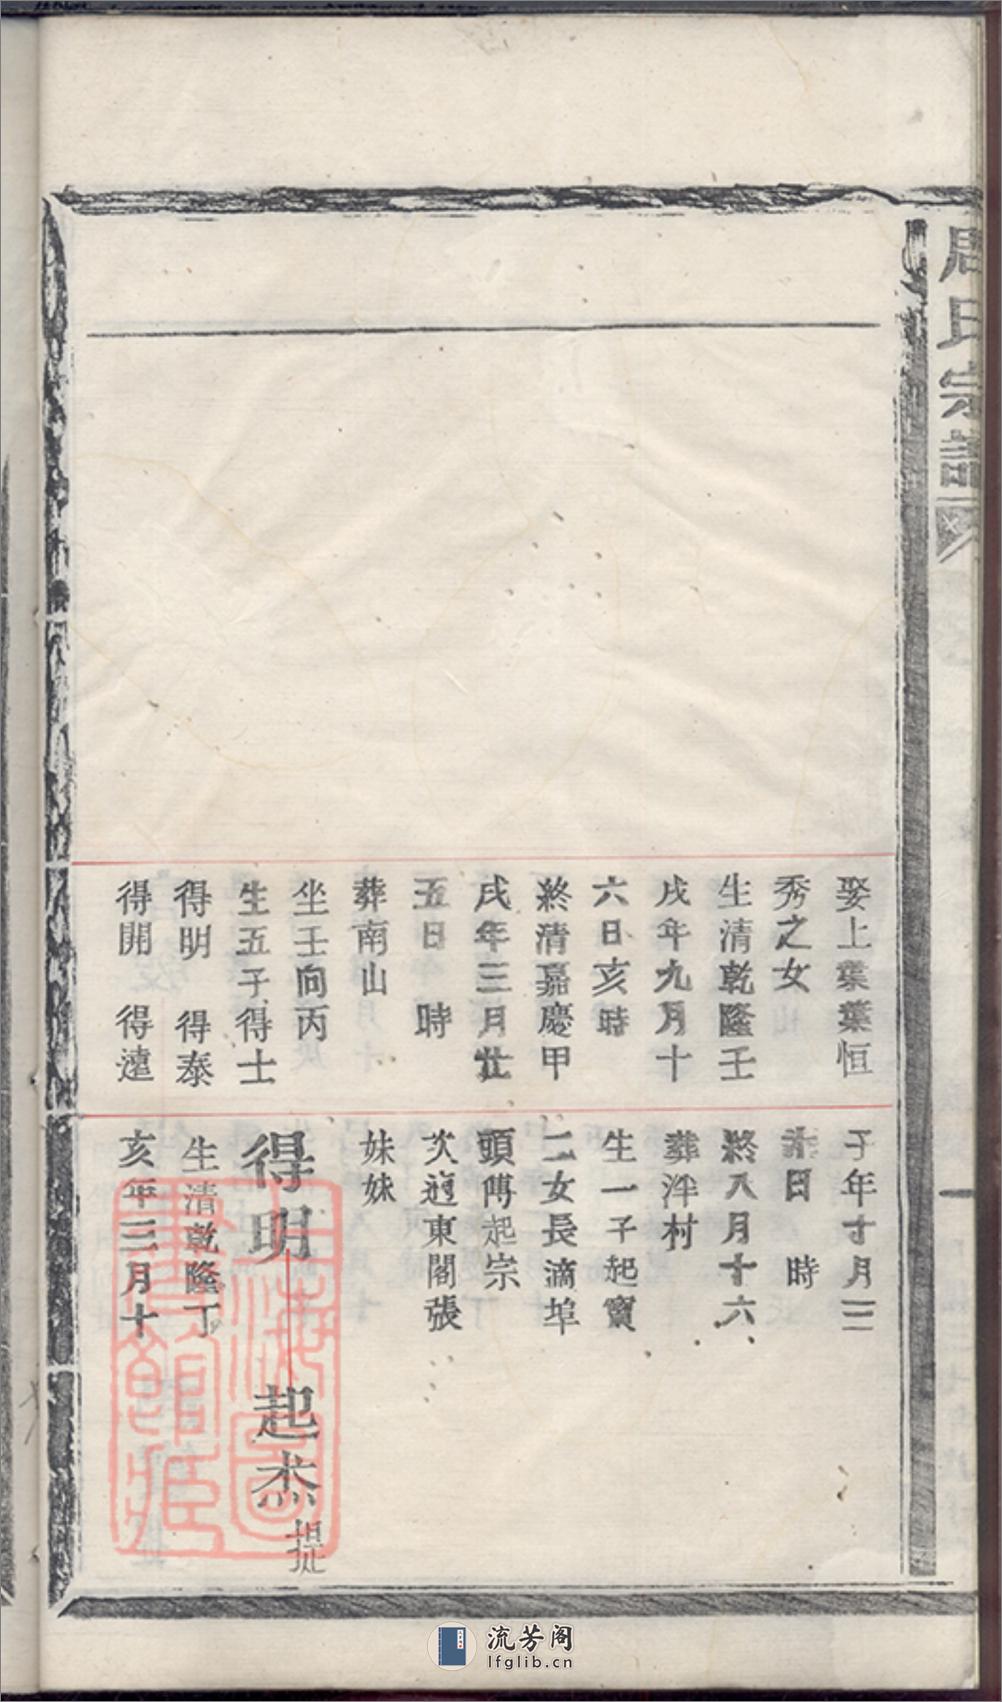 周氏宗譜
娶上葉葉恒
秀之女
生清乾隆壬
戌年九月十
六日亥時
終清嘉慶甲
戌年三月廿
五日　時
葬南山
坐壬向丙
生五子得士
得明　得泰
得開　得遠
子年十月二
十日　時
終八月十六
葬泮村
生一子起寶
二女長滴埠
頭傅起宗
次適東閣張
妹妹
得明　起杰 提
生清乾隆丁
亥年三月十
上海圖書館藏
流芳阁
lfglib.cn